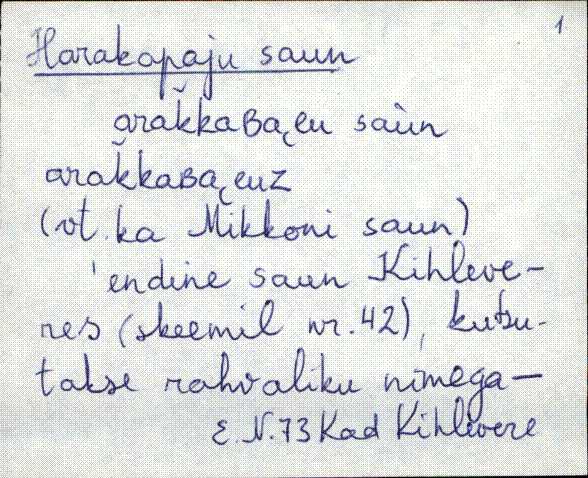 1
Harakapaju saun
ărak̆kaʙa̯i̯u saùn
ărak̆kaʙa̯i̯uz
(vt. ka Mikkoni saun)
'endine saun Kihleve-
res (skeemil nr. 42), kutsu-
takse rahvaliku nimega —
E. N. 73 Kad Kihlevere